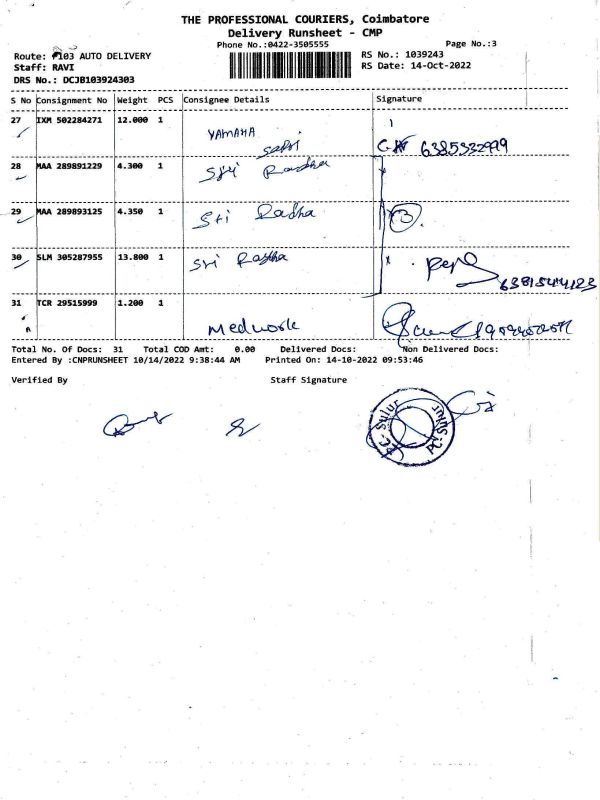 THE PROFESSIONAL COURIERS, Coimbatore
Delivery Runsheet - CMP
Phone No.:0422-3505555
Page No.:3
Route: 103 AUTO DELIVERY
RS No.: 1039243
Staff: RAVI
RS Date: 14-Oct-2022
DRS No.: DCJB103924303
S No Consignment No Weight PCS Consignee Details Signature
27 IXM 502284271 12.000 1 YAMAHA
28 MAA 289891229 4.300 1 Sri Radha
29 MAA 289893125 4.350 1 Sri Radha
3
30 SLM 305287955 13.800 1 Sri Radha
31 TCR 29515999 1.200 1 Medwork
Total No. Of Docs: 31 Total COD Amt: 0.00 Delivered Docs: Non Delivered Docs:
Entered By :CNPRUNSHEET 10/14/2022 9:38:44 AM Printed On: 14-10-2022 09:53:46
Verified By Staff Signature
PC-Sulur
PC-Sulur